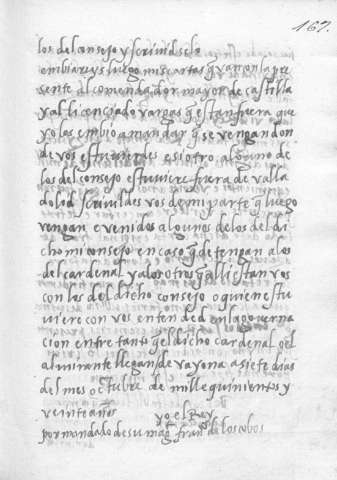 167.
los del consejo y scriuiselo
embiareys luego mis cartas q̃ van con la pre
sente al comendador mayor de castilla
y al licenciado vargas q̃ estan fuera que
yo les embio a mandar q̃ se vengan don
de vos estuuierdes e si otro alguno de
los del consejo estuuiere fuera de valla
dolid scriuildes vos de mi parte q̃ luego
vengan e venidos algunos de los del di
cho mi consejo en caso q̃ detengan a los
del cardenal y a los otros q̃ alli estan vos
con los del dicho consejo o quien estu
uiere con vos entended en la gouerna
cion entre tanto q̃ el dicho cardenal o el
almirante llegan de vayona a siete dias
del mes octubre de mill e quinientos y
veinte años yo el Rey
por mandado de su mag. fran.co de los cobos